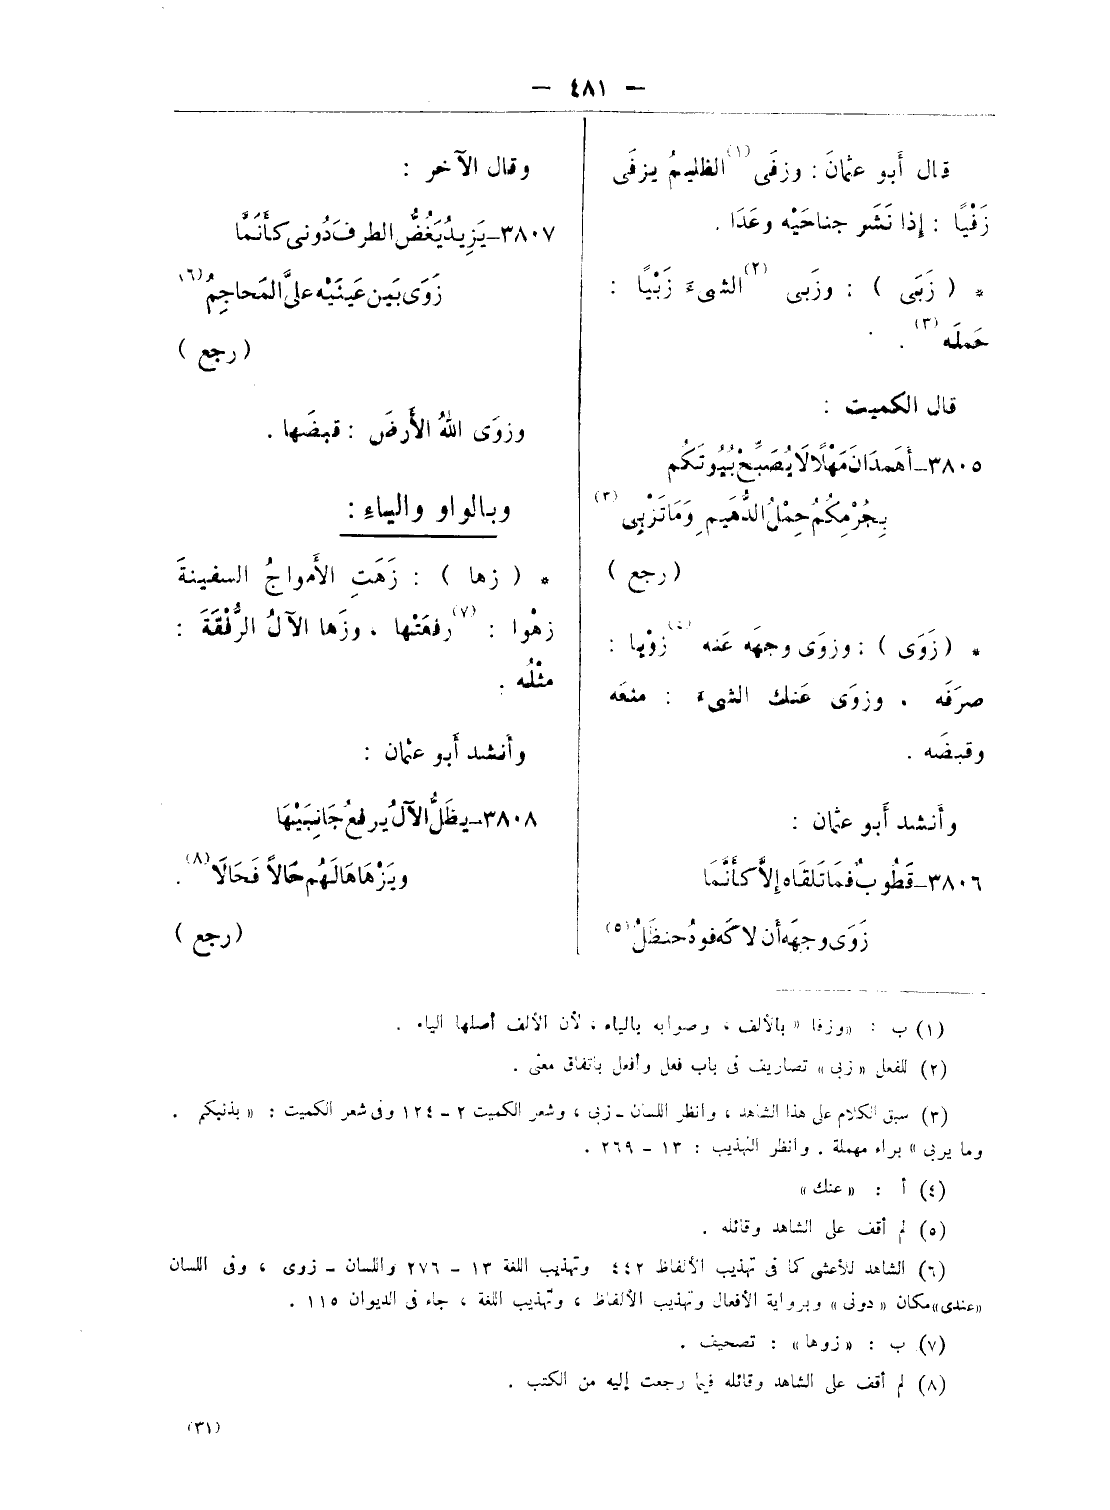 — ٤٨١ —
قال أَبو عثمانَ : وزفَى (١) الظليمُ يزفَى
زَفْيًا : إذا نَشَر جناحيْه وعَدَا .
* ( زَبَى ) : وزَبى (٢) الشىءَ زَبْيًا :
حَملَه (٣) .
قال الكميت :
٣٨٠٥ــ أهَمدَانَ مَهْلًا لَا يُصَبِّحْ بُيُوتَكُم
بِجُرْمِكُمُ حِمْلُ الدُّهَيمِ وَمَا تَزْبِى (٣)
( رجع )
* ( زَوَى ) : وزوَى وجهَه عَنه (٤) زوْيا :
صرَفَه . وزوَى عَنك الشىءَ : منعَه
وقبضَه .
وأَنشد أَبو عثمان :
٣٨٠٦ــ قَطُوبٌ فمَا تَلقَاه إلاَّ كأَنَّمَا
زَوَى وجهَه أن لاكَه فوهُ حنظَلُ (٥)
وقال الآخر :
٣٨٠٧ــ يَزِيدُ يَغُضُّ الطرفَ دُونى كأَنَّمَّا
زَوَى بَين عَينَيْه علىَّ المَحاجِمُ (٦)
( رجع )
وزوَى اللهُ الأَرضَ : قبضَها .
وبالواو والياءِ :
* ( زها ) : زَهَتِ الأَمواجُ السفينةَ
زهْوا : (٧) رفعَتْها ، وزَها الآلُ الرُّفْقَةَ :
مثْلُه .
وأنشد أَبو عثمان :
٣٨٠٨ــ يظَلُّ الآلُ يرفعُ جَانِبَيْهَا
ويَزْهَاهَا لَهُم حَالاً فَحَالَا (٨) .
( رجع )
(١) ب : «وزفا» بالألف ، وصوابه بالياء ، لأن الألف أصلها الياء .
(٢) للفعل «زبى» تصاريف فى باب فعل وأفعل باتفاق معنى .
(٣) سبق الكلام على هذا الشاهد ، وانظر اللسان ـ زبى ، وشعر الكميت ٢ – ١٢٤ وفى شعر الكميت : «بذنبكم .
وما يربى» براء مهملة . وانظر التهذيب : ١٣ – ٢٦٩ .
(٤) أ : «عنك»
(٥) لم أقف على الشاهد وقائله .
(٦) الشاهد للأعشى كما فى تهذيب الألفاظ ٤٤٢ وتهذيب اللغة ١٣ – ٢٧٦ واللسان ـ زوى ، وفى اللسان
«عندى» مكان «دونى» وبرواية الأفعال وتهذيب الألفاظ ، وتهذيب اللغة ، جاء فى الديوان ١١٥ .
(٧) ب : «زوها» : تصحيف .
(٨) لم أقف على الشاهد وقائله فيما رجعت إليه من الكتب .
(٣١)